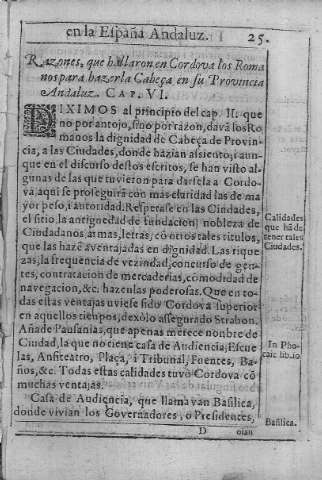 en la España Andaluz. 25.
Razones, que hallaron en Cordova los Roma
nos para hazerla Cabeça en su Provincia
Andaluz. CAP. VI.
DIXIMOS al principio del cap. II. que
no por antojo, sino por razon, davã los Ro
manos la dignidad de Cabeça de Provin-
cia, a las Ciudades, donde hazian assiento; i aun-
que en el discurso destos escritos, se han visto al-
gunas de las que tuvieron para darsela a Cordo-
va, aqui se proseguirà con mas cluridad las de ma
yor peso, i autoridad. Respetase en las Ciudades,
el sitio, la antiguedad de fundacion, nobleza de
Ciudadanos, armas, letras, cõ otros tales titulos,
que las hazẽ aventajadas en dignidad. Las rique
zas, la frequencia de vezindad, concurso de gen-
tes, contratacion de mercaderias, comodidad de
navegacion, &c. hazenlas poderosas. Que en to-
das estas ventajas uviese sido Cordova superior
en aquellos tiempos, dexòlo assegurado Strabon.
Añade Pausanias, que apenas merece nonbre de
Ciudad, la que no tiene casa de Audiencia, Escue
las, Anfiteatro, Plaça, i Tribunal, Fuentes, Ba-
ños, &c. Todas estas calidades tuvo Cordova cõ
muchas ventajas.
Casa de Audiencia, que llamavan Basilica,
donde vivian los Governadores, o Presidentes,
D oian
Calidades
que hã de
tener tales
Ciudades.
In Pho-
caic. lib. 10
Basilica.